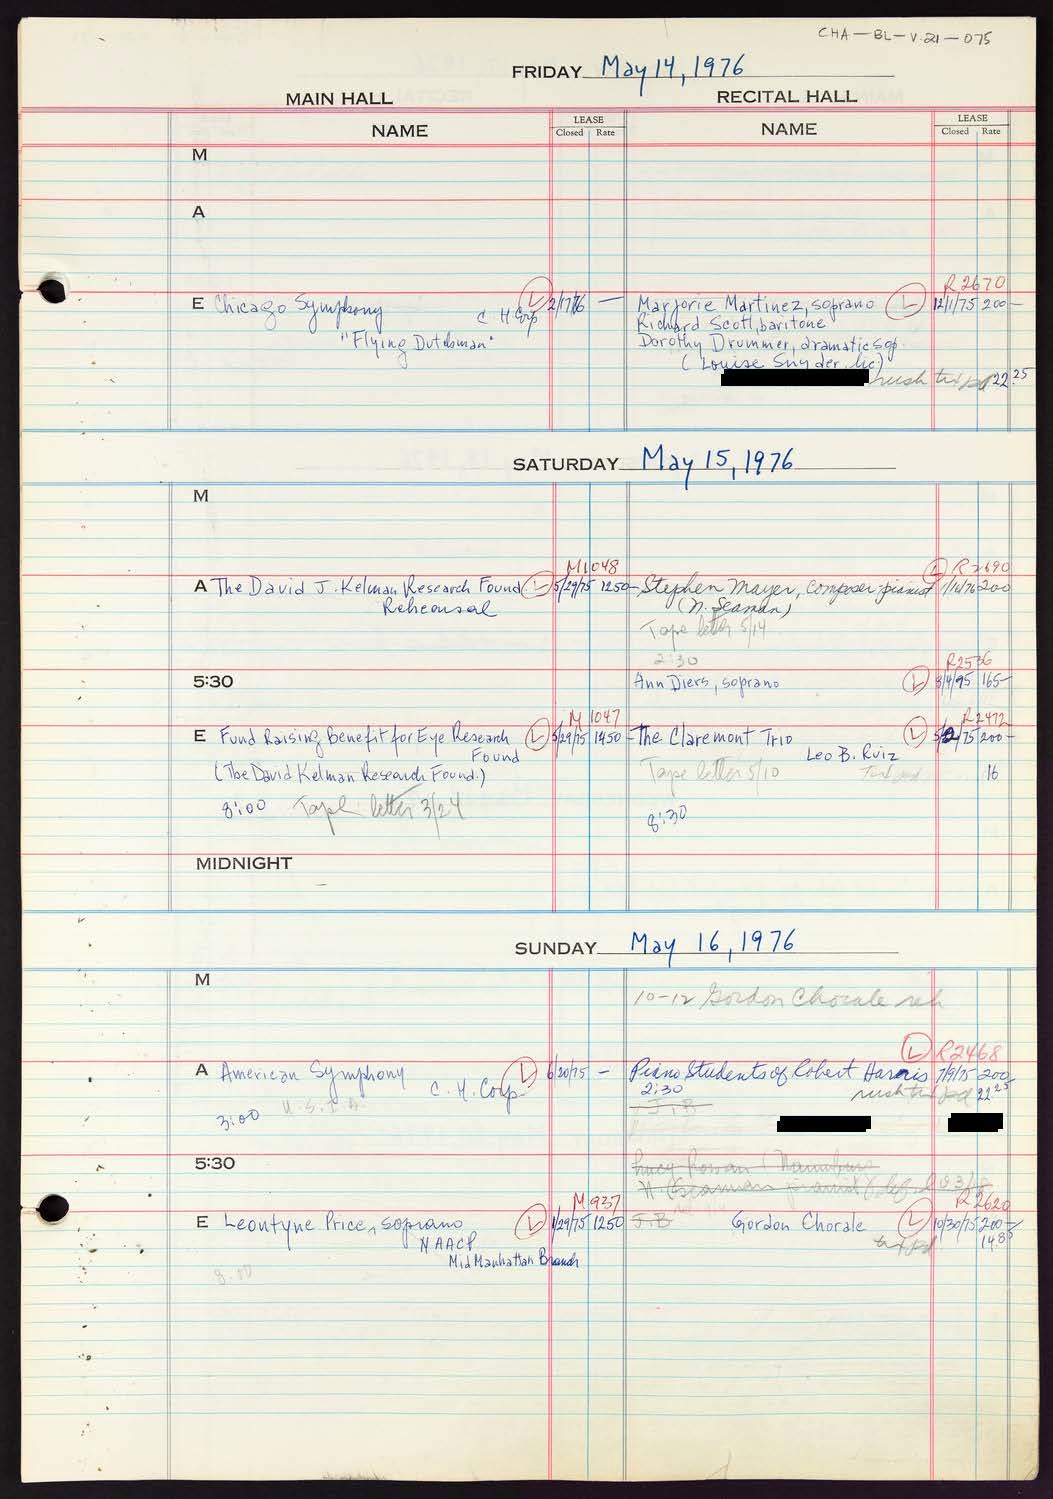 CHA-BL-V.21-075
FRIDAY May 14, 1976
MAIN HALL
RECITAL HALL
NAME
LEASE
Closed Rate
NAME
LEASE
Closed Rate
M
A
R2670
E Chicago Symphony L 2/17/76 —
C H Corp
"Flying Dutchman"
Marjorie Martinez, soprano L 12/1/75 200—
Richard Scott, baritone
Dorothy Drummer, dramatic sop.
(Louise Snyder, lic)
rush tix pd 22.25
SATURDAY May 15, 1976
M
M1048
A The David J. Kelman Research Found. L 5/29/75 1250—
Rehearsal
L R2690
Stephen Mayer, composer-pianist 1/16/76 200
(N. Seaman)
Tape letter 5/14
2:30
5:30
R2536
Ann Diers, soprano L 165—
M 1047
E Fund Raising Benefit for Eye Research L 5/29/75 1450—
Found
(The David Kelman Research Found.)
8:00 Tape letter 3/24
R2472
The Claremont Trio L 200—
Leo B. Ruiz
Tape letter 5/10
16
8:30
MIDNIGHT
SUNDAY May 16, 1976
M
10-12 Gordon Chorale reh
A American Symphony L 6/20/75 —
C. H. Corp
3:00 U.S.I.A.
L R2468
Piano Students of Robert Harris 7/9/75 200
2:30 rush tix pd 22.25
J.B
5:30
M 937
E Leontyne Price, soprano L 1/29/75 1250
NAACP
Mid Manhattan Branch
8:00
R2620
J.B Gordon Chorale L 10/30/75 200—
tix pd 14.85